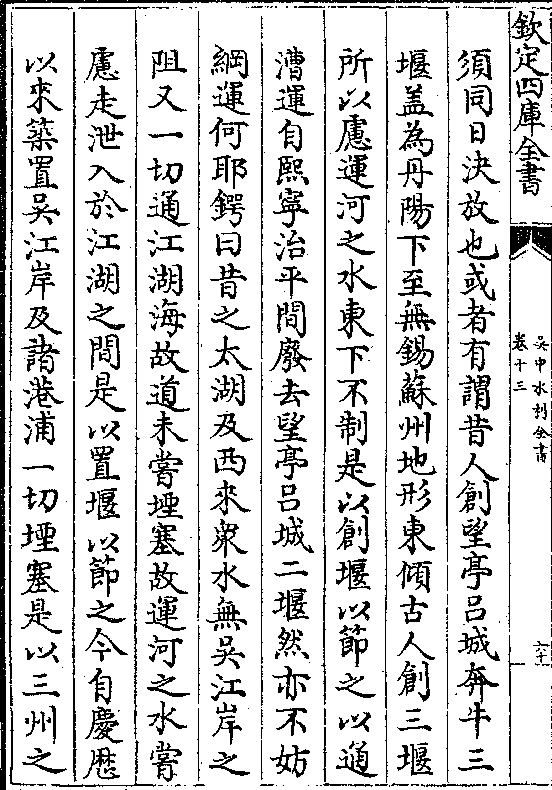 欽定四庫全書
吳中水利全書
卷十三
六十
須同日決放也或者有謂昔人創望亭呂城奔牛三
堰盖為丹陽下至無錫蘇州地形東傾古人創三堰
所以慮運河之水東下不制是以創堰以節之以通
漕運自熙寧治平間廢去望亭呂城二堰然亦不妨
綱運何耶鍔曰昔之太湖及西來衆水無吳江岸之
阻又一切通江湖海故道未嘗堙塞故運河之水嘗
慮走泄入於江湖之間是以置堰以節之今自慶厯
以來築置吳江岸及諸港浦一切堙塞是以三州之